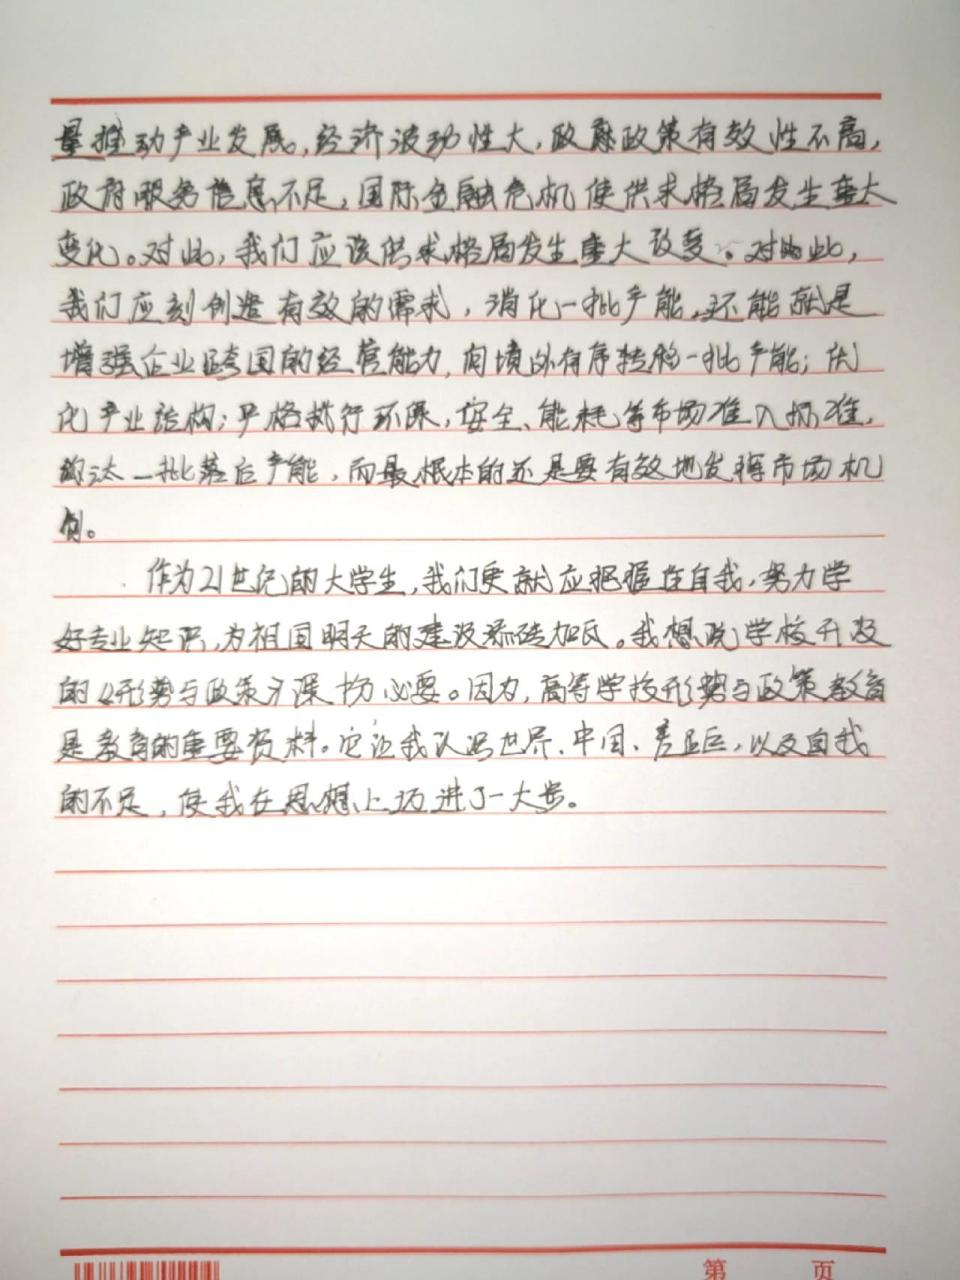 量推动产业发展。经济波动性大,政府政策有效性不高,
政府服务信息不足,国际金融危机使供求格局发生重大
变化。对此,我们应该供求格局发生重大改变。对此,
我们应创造有效的需求,消化一批产能。还能就是
增强企业跨国的经营能力,向境外有序转移一批产能;优
化产业结构;严格执行环保,安全、能耗等市场准入标准,
淘汰一批落后产能,而最根本的还是要有效地发挥市场机
制。
作为21世纪的大学生,我们更就应把握住自我,努力学
好专业知识,为祖国明天的建设添砖加瓦。我想说学校开设
的《形势与政策》课极为必要。因为,高等学校形势与政策教育
是教育的重要资料。它让我认识世界、中国、以及自我
的不足,使我在思想上迈进了一大步。
第 页